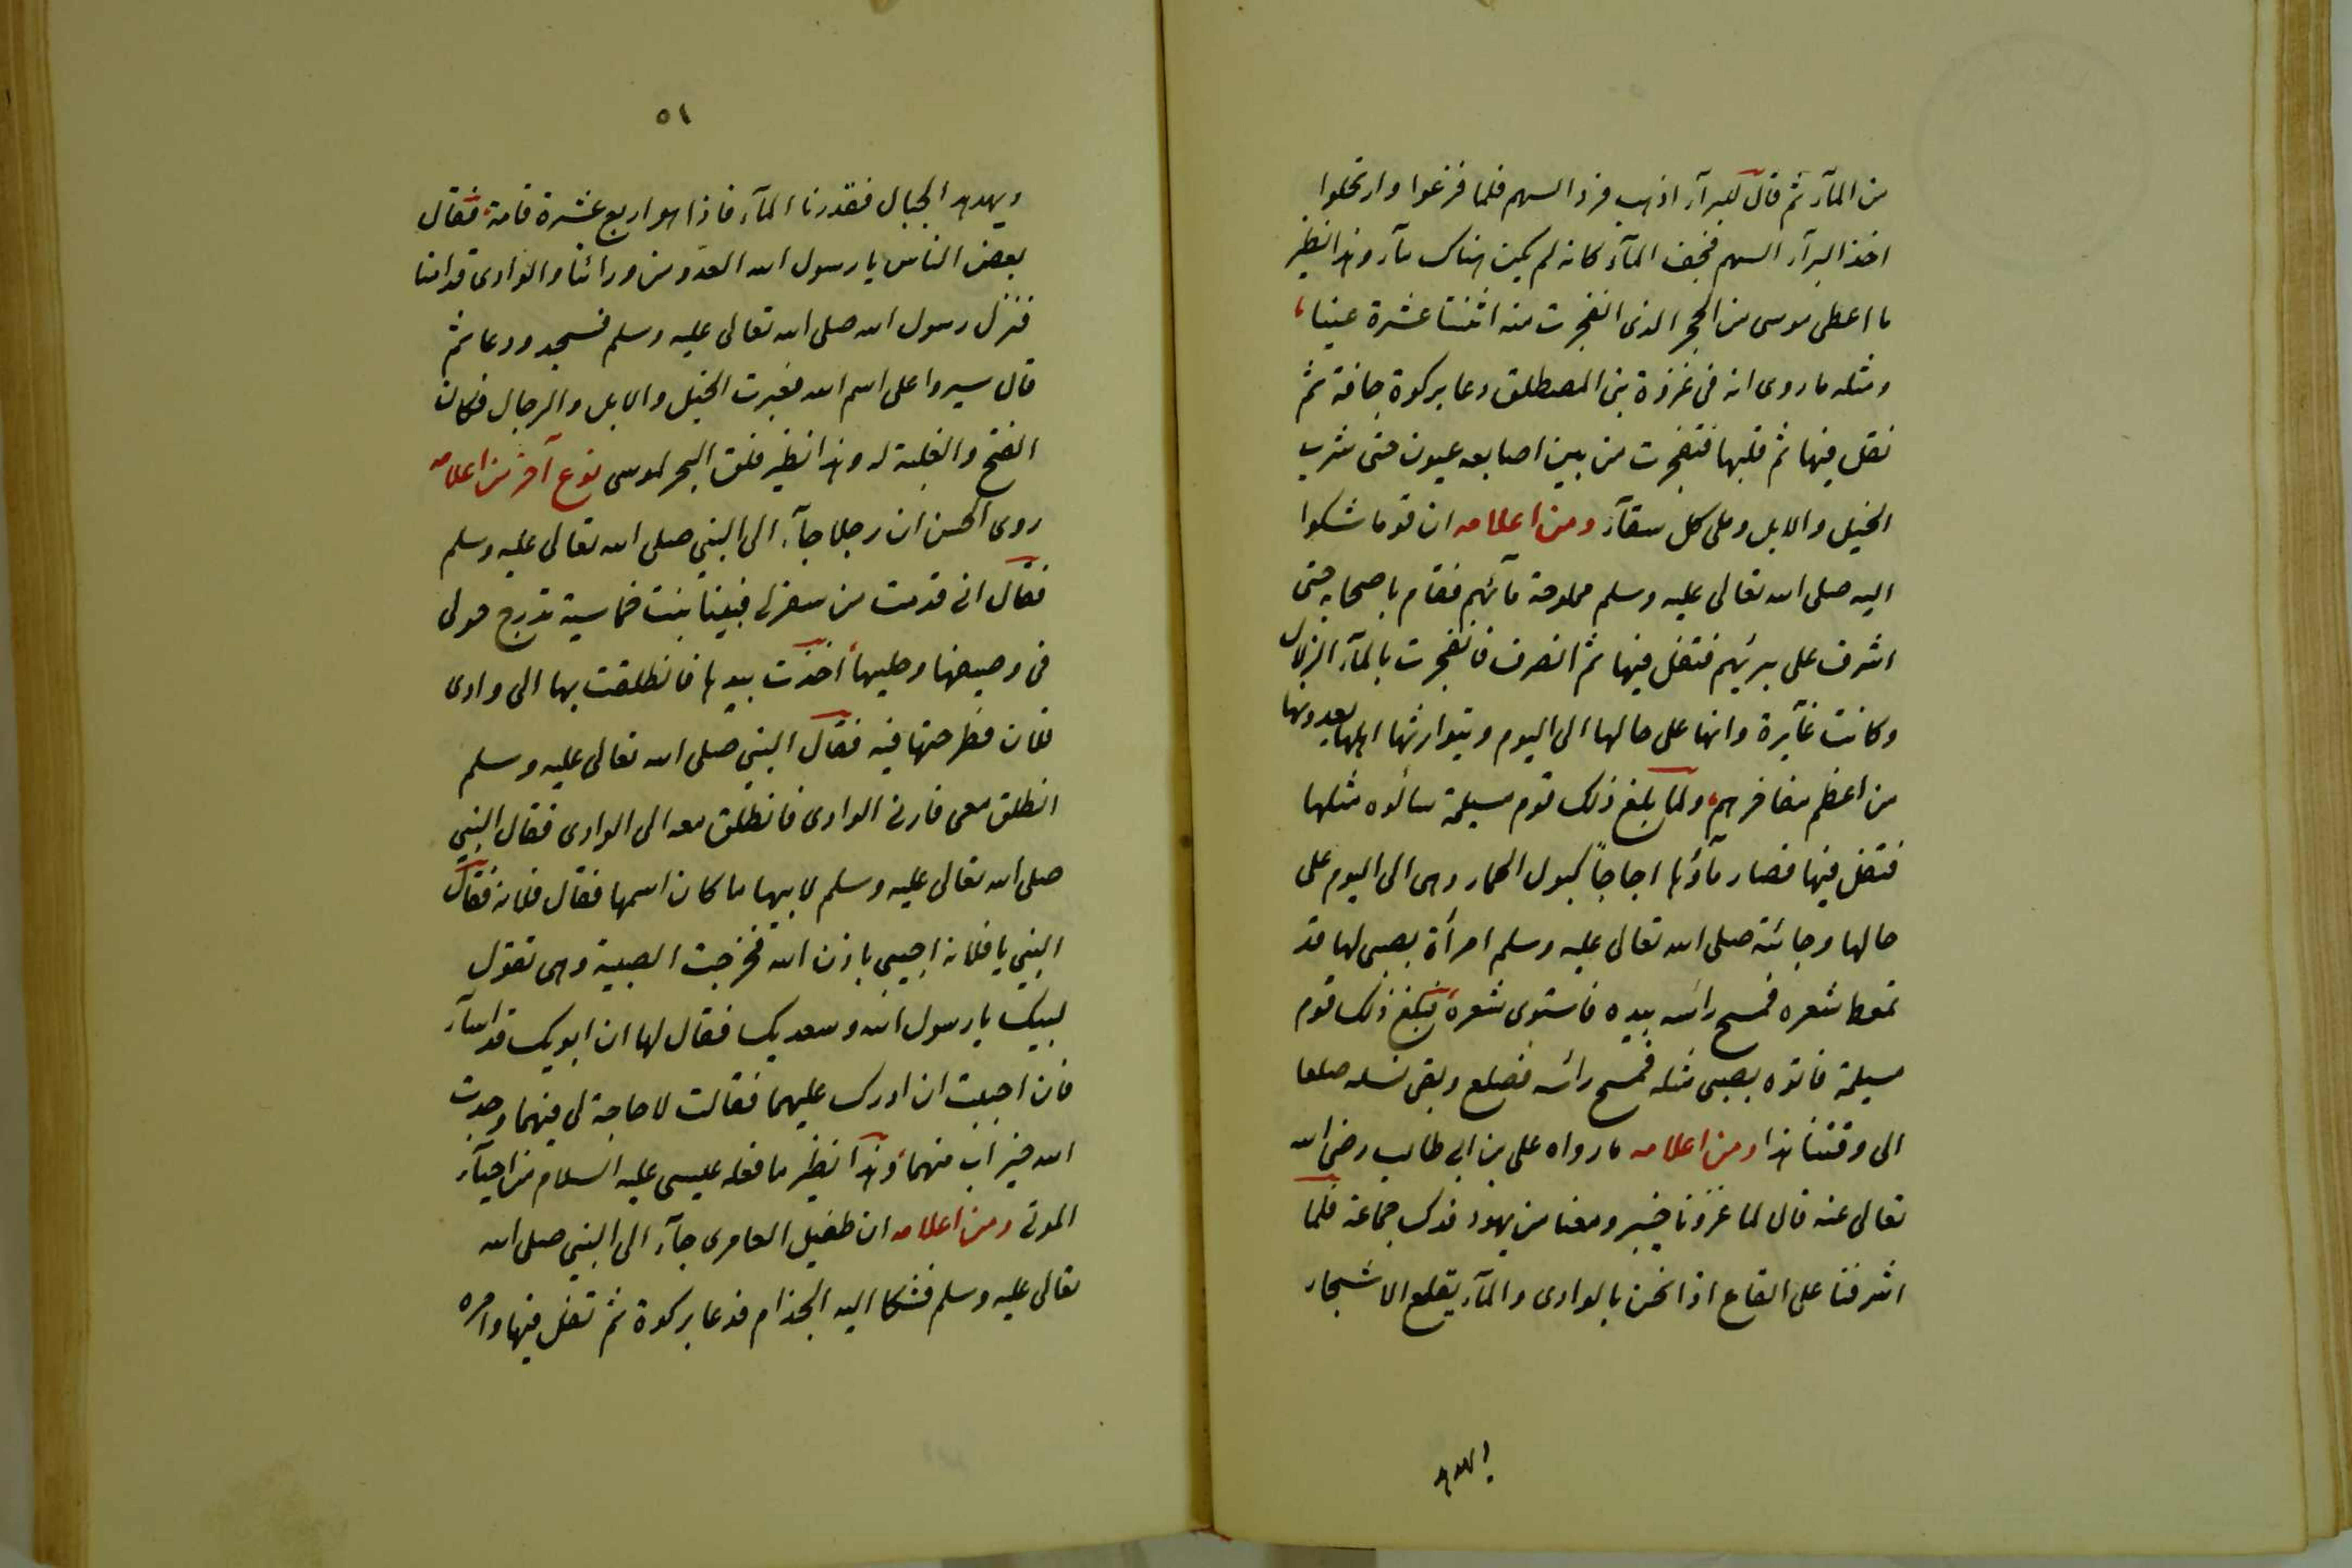 من المآء ثم قال للبرآء اذهب فرد السهم فلما فرغوا وارتحلوا
اخذ البرآء السهم فجف المآء كانه لم يكن هناك مآء وهذا نظير
ما اعطى موسى من الحجر الذى انفجرت منه اثنتا عشرة عينا
ومثله ما روى انه فى غزوة بنى المصطلق دعا بركوة جافة ثم
تفل فيها ثم قلبها فتفجرت من بين اصابعه عيون حتى شرب
الخيل والابل وملى كل سقآء ومن اعلامه ان قوما شكوا
اليه صلى الله تعالى عليه وسلم ملوحة مآئهم فقام باصحابه حتى
اشرف على بيرئهم فتفل فيها ثم انصرف فانفجرت بالمآء الزلال
وكانت غآيرة وانها على حالها الى اليوم ويتوارثها اهلها يعدونها
من اعظم مفاخرهم ولما بلغ ذلك قوم مسيلمة سألوه مثلها
فتفل فيها فصار مآؤها اجاجاً كبول الحمار وهى الى اليوم على
حالها وجائته صلى الله تعالى عليه وسلم امرأة بصبى لها قد
تمعط شعره فمسح رأسه بيده فاستوى شعره فبلغ ذلك قوم
مسيلمة فاتوه بصبى مثله فمسح رأسه فصلع وبقى نسله صلعا
الى وقتنا هذا ومن اعلامه ما رواه على بن ابى طالب رضى الله
تعالى عنه قال لما غزونا خيبر ومعنا من يهود فدك جماعة فلما
اشرفنا على القاع اذا نحن بالوادى والمآء يقلع الاشجار
ويهدهد
٥١
ويهدهد الجبال فقدرنا المآء فاذا هو اربع عشرة قامة فقال
بعض الناس يا رسول الله العدو من ورائنا والوادى قدامنا
فنزل رسول الله صلى الله تعالى عليه وسلم فسجد ودعا ثم
قال سيروا على اسم الله فعبرت الخيل والابل والرجال فكان
الفتح والغلبة له وهذا نظير فلق البحر لموسى نوع آخر من اعلامه
روى الحسن ان رجلا جآء الى النبى صلى الله تعالى عليه وسلم
فقال انى قدمت من سفر لى فبينا بنت خماسية تدرج حولى
فى وصيغها وحليها اخذت بيدها فانطلقت بها الى وادى
فلان فطرحتها فيه فقال النبى صلى الله تعالى عليه وسلم
انطلق معى فارنى الوادى فانطلق معه الى الوادى فقال النبى
صلى الله تعالى عليه وسلم لابيها ما كان اسمها فقال فلانه فقال
النبى يا فلانه اجيبى باذن الله فخرجت الصبية وهى تقول
لبيك يا رسول الله وسعديك فقال لها ان ابويك قد اسآء
فان احببت ان اردك عليهما فقالت لا حاجة لى فيهما وجدت
الله خير اب منهما وهذا نظير ما فعله عيسى عليه السلام من احيآء
الموتى ومن اعلامه ان طفيل العامرى جآء الى النبى صلى الله
تعالى عليه وسلم فشكا اليه الجذام فدعا بركوة ثم تفل فيها وامره